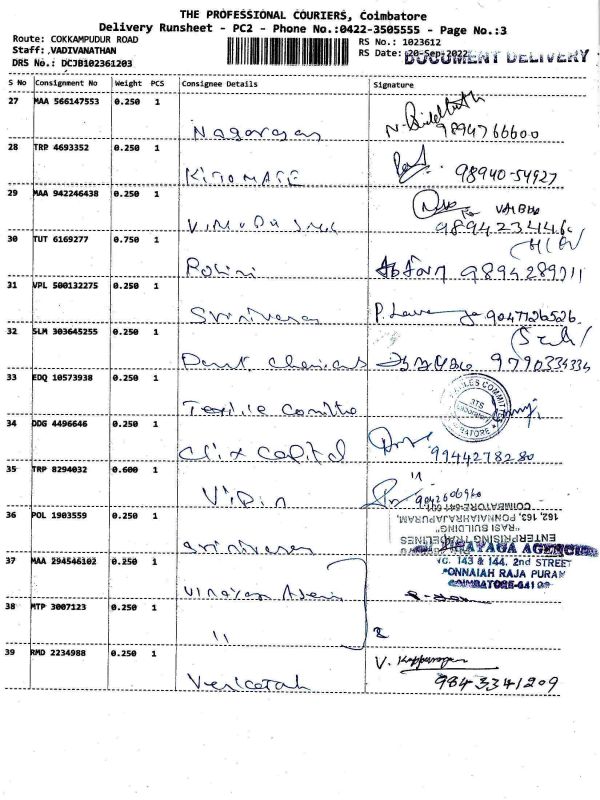 THE PROFESSIONAL COURIERS, Coimbatore
Delivery Runsheet - PC2 - Phone No.:0422-3505555 - Page No.:3
Route: COKKAMPUDUR ROAD
RS No.: 1023612
Staff: .VADIVANATHAN
RS Date: 20-Sep-2022
DOCUMENT DELIVERY
DRS No.: DCJB102361203
S No Consignment No Weight PCS Consignee Details Signature
27 MAA 566147553 0.250 1
Nagarajan
9894766600
28 TRP 4693352 0.250 1
98940-54927
29 MAA 942246438 0.250 1
30 TUT 6169277 0.750 1
Rohini
9894289711
31 VPL 500132275 0.250 1
Srinivasa
9047726526
32 SLM 303645255 0.250 1
9790334334
33 EDQ 10573938 0.250 1
Textile Comitte
34 DDG 4496646 0.250 1
Clix Capital
9944278280
35 TRP 8294032 0.600 1
Vipin
36 POL 1903559 0.250 1
Srinivasan
ENTERPRISING TRADELINES
"RASI BUILDING"
162, 163, PONNAIAHRAJAPURAM,
COIMBATORE-641 001.
37 MAA 294546102 0.250 1
AGENCIES
NO. 143 & 144, 2nd STREET
PONNAIAH RAJA PURAM
COIMBATORE-641 001
38 MTP 3007123 0.250 1
11
39 RMD 2234988 0.250 1
Venkatah
9843341209